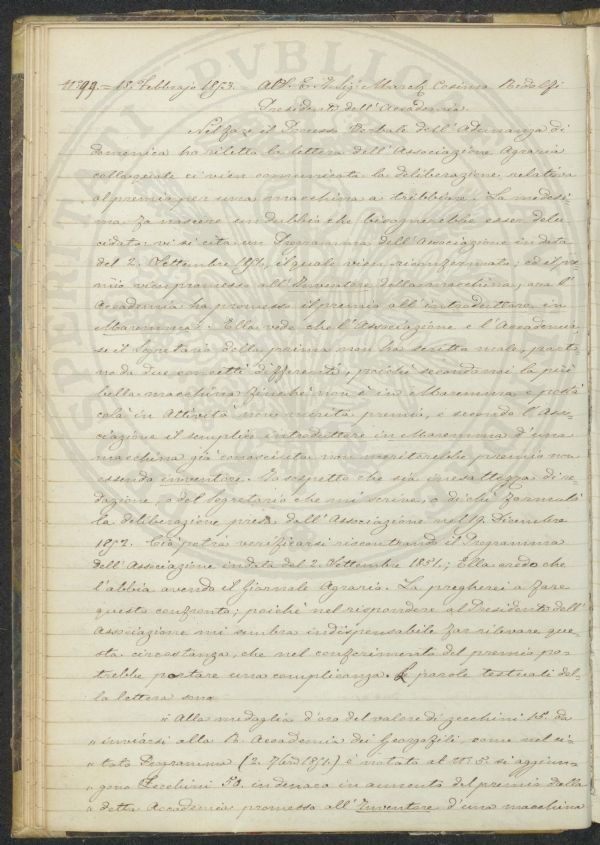 N.º 99. = 18. Febbrajo 1853. - All' E. Sig. March. Cosimo Ridolfi
Presidente dell'Accademia
Nel fare il Processo Verbale dell'Adunanza di
domenica ho riletto la lettera dell'Associazione Agraria
colla quale ci vien comunicata la deliberazione relativa
al premio per una macchina a tribbiare. La medesi=
ma fa nascere un dubbio che bisognerebbe esser delu=
cidato: vi si cita un Programma dell'Associazione in data
del 2. Settembre 1851, il quale vien riconfermato; ed il pre=
mio vien promesso all'Inventore della macchina, ora l'
Accademia ha promesso il premio all'introduttore in
Maremma: Ella vede che l'Associazione e l'Accademia,
se il Segretario della prima non ha scritto male, parto=
no da due concetti differenti, poichè secondo noi la più
bella macchina finchè non è in Maremma e posta
colà in Attività non merita premio, e secondo l'Asso=
ciazione il semplice introduttore in Maremma d'una
macchina già conosciuta non meriterebbe premio non
essendo inventore. Io sospetto che sia inesattezza di re=
dazione o del Segretario che mi scrive, o di chi formulò
la deliberazione presa dall'Associazione nel 19. Dicembre
1852. Ciò potrà verificarsi riscontrando il Programma
dell'Associazione in data del 2. Settembre 1851; Ella credo che
l'abbia avendo il Giornale Agrario. La pregherei a fare
questo confronto; poichè nel rispondere al Presidente dell'
Associazione mi sembra indispensabile far rilevare que=
sta circostanza, che nel conferimento del premio po=
trebbe portare una complicanza. Le parole testuali del=
la lettera sono
" Alla medaglia d'oro del valore di zecchini 15. da
" inviarsi alla R. Accademia dei Georgofili, come nel ci=
" tato Programma (2. 7bre 1851.) è notato al N.º 5. si aggiun=
" gono Zecchini 50. in denaro in aumento del premio dalla
" detta Accademia promesso all'Inventore d'una macchina